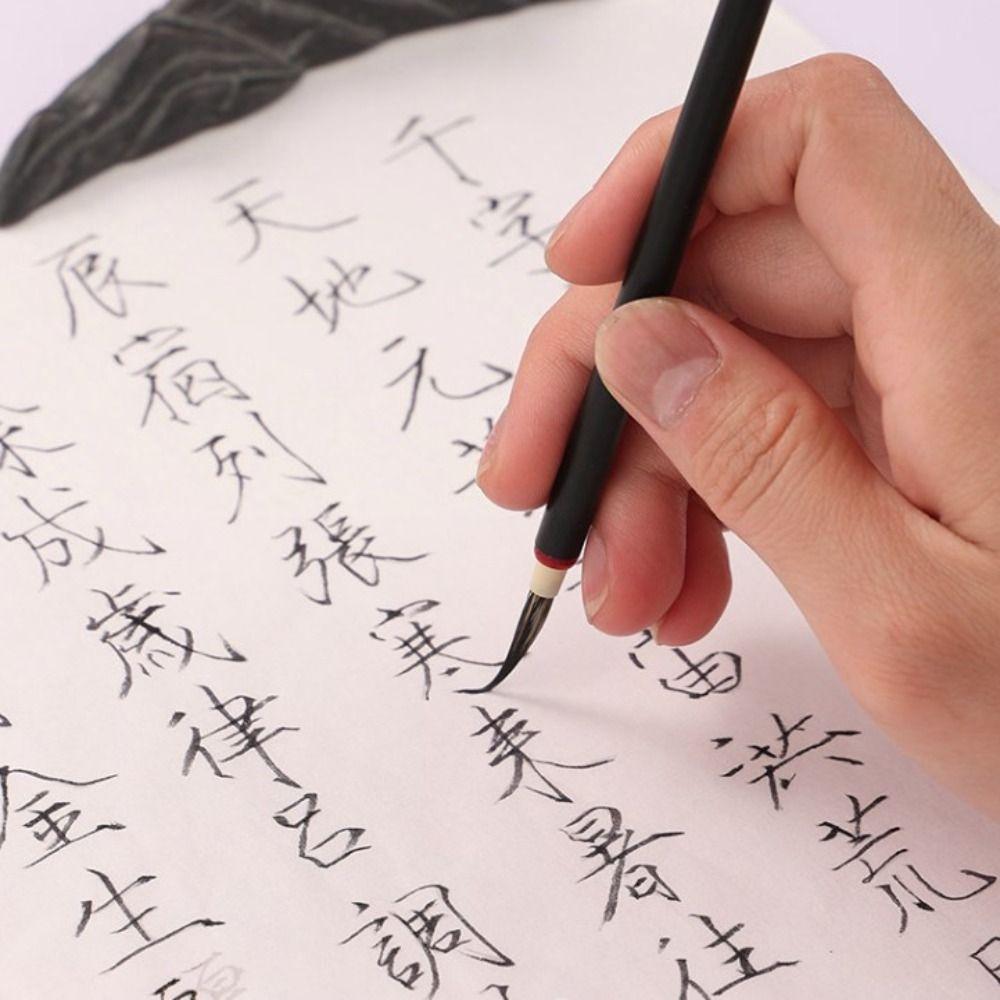 千字
天地元宙洪荒
辰宿列張寒来暑往
成歲律呂調
金生